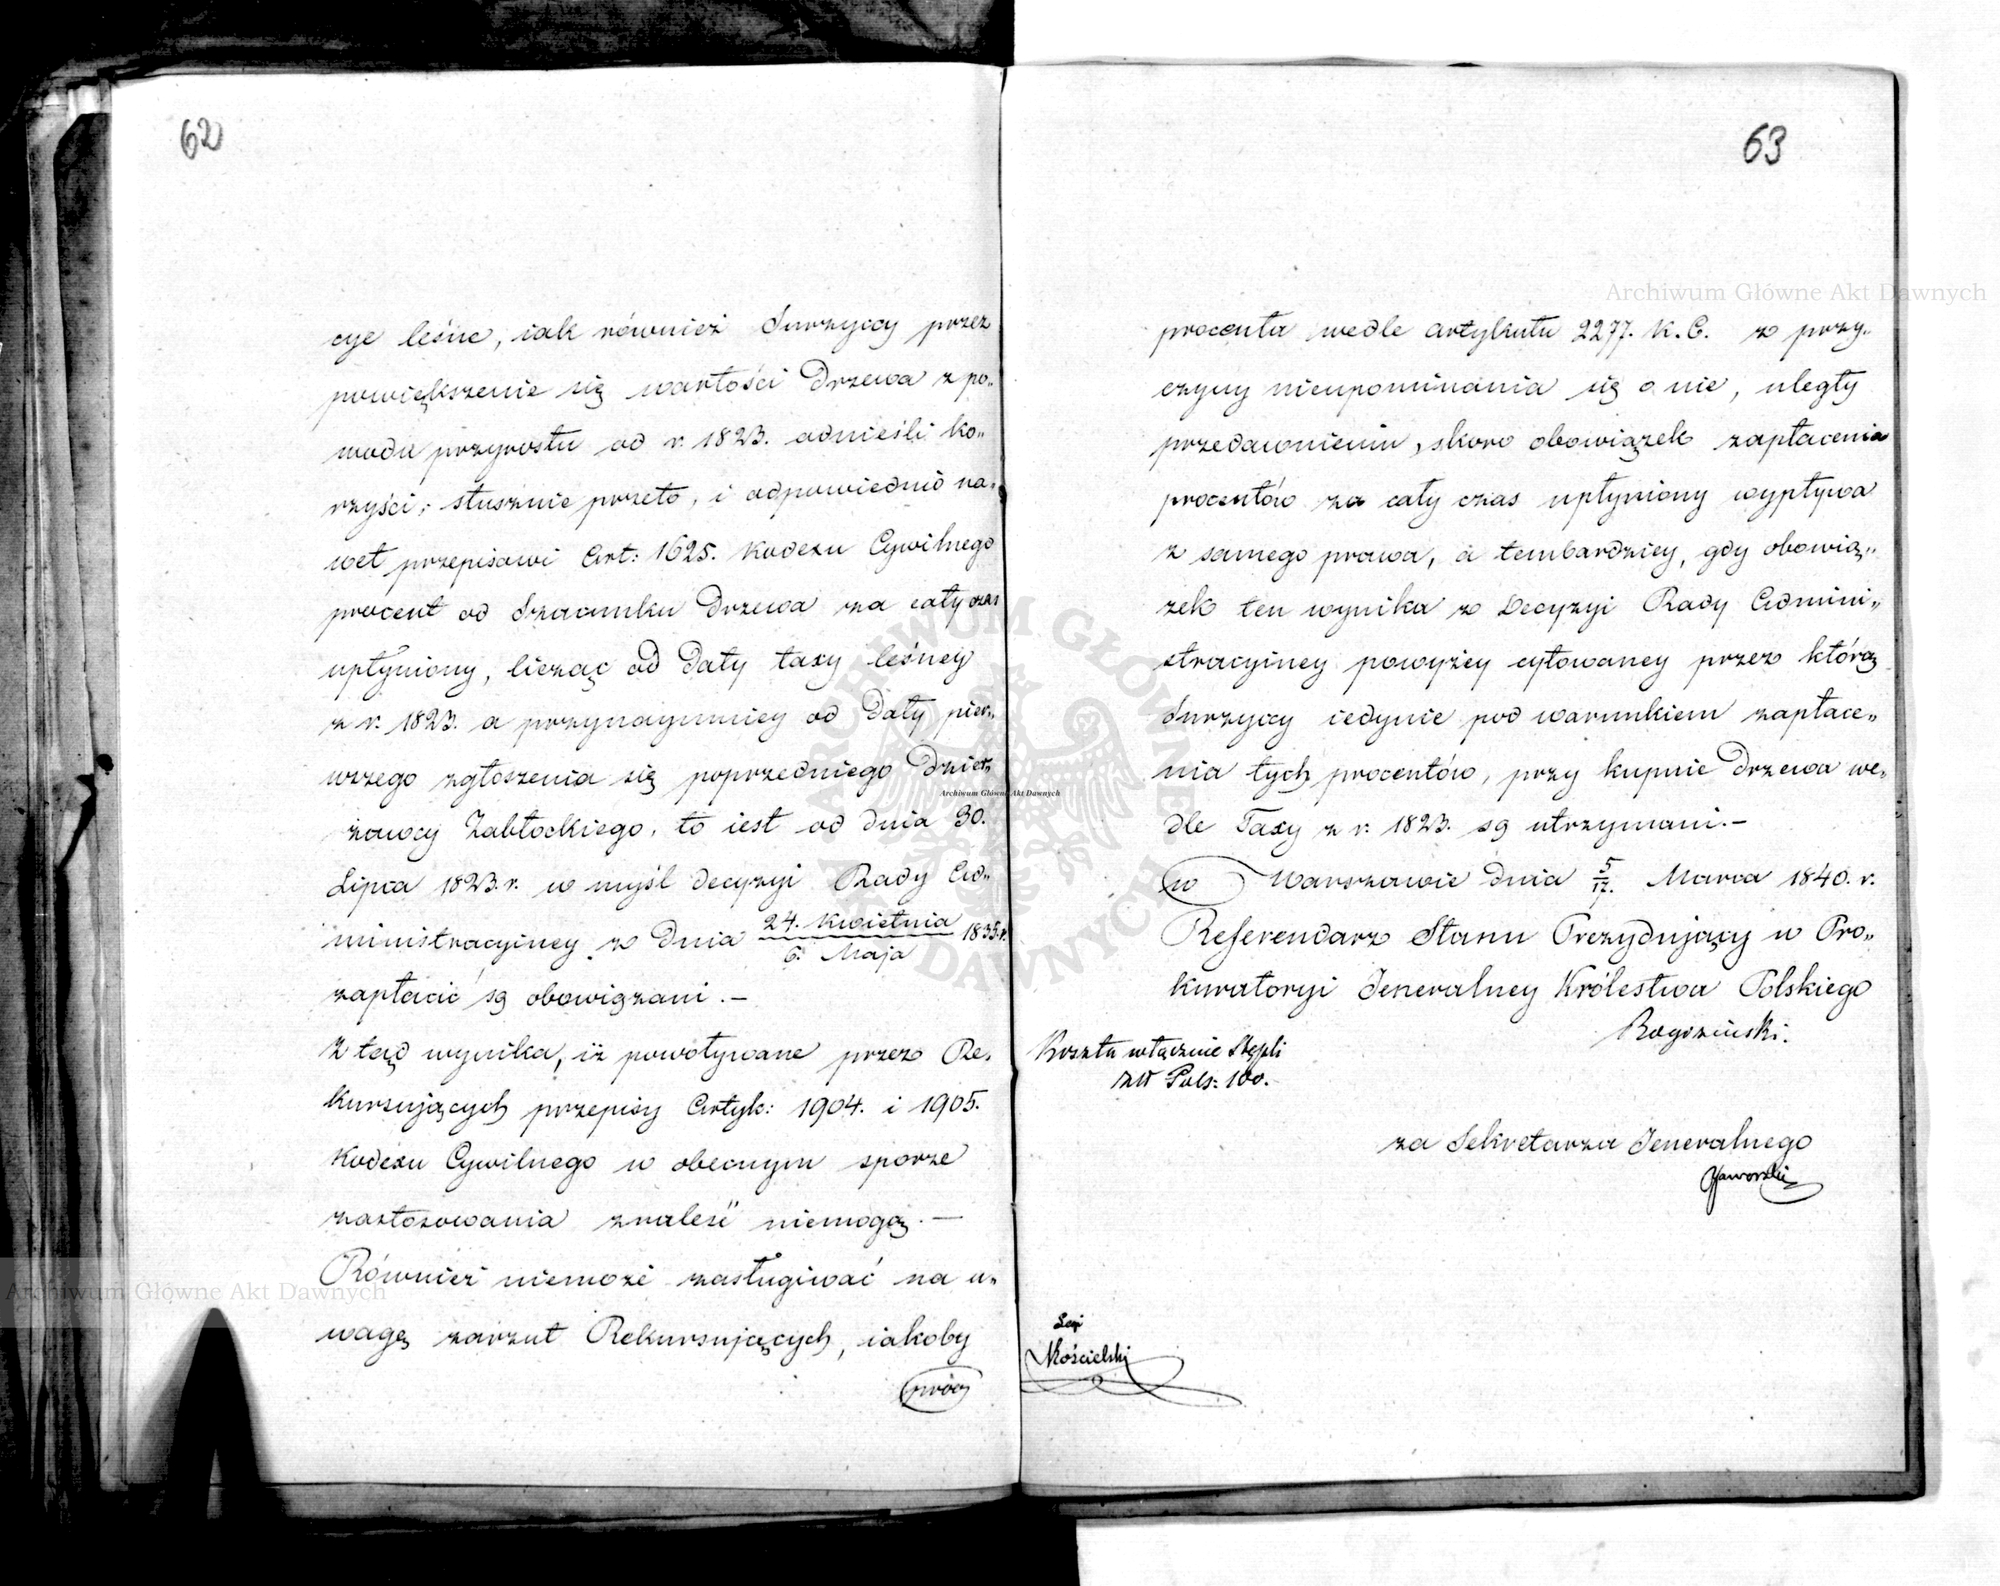 62
cye leśne, iak również Surzyccy przez
powiększenie się wartości Drzewa z po„
wodu przyrostu od r. 1823. odnieśli ko„
rzyści; słusznie przeto, i odpowiednio na„
wet przepisowi Art: 1625. Kodexu Cywilnego
procent od Szacunku Drzewa za cały czas
upłyniony, licząc od Daty taxy leśney
z r. 1823. a przynaymniey od Daty pier„
wszego zgłoszenia się poprzedniego Dzier„
żawcy Zabłockiego, to iest od dnia 30.
Lipca 1823. r. w myśl decyzyi Rady Ad„
ministracyiney z Dnia 24. Kwietnia / 6. Maja 1835. r.
zapłacić są obowiązani. —
Z tąd wynika, iż powoływane przez Re„
kursujących przepisy Artyk: 1904. i 1905.
Kodexu Cywilnego w obecnym sporze
zastosowania znaleść niemogą. —
Również niemoże zasługiwać na u„
wagę zarzut Rekursujących, iakoby
63
procenta wedle artykułu 2277. K. C. z przy„
czyny nieupominania się o nie, uległy
przedawnieniu, skoro obowiązek zapłacenia
procentów za cały czas upłyniony wypływa
z samego prawa, a tembardziey, gdy obowią„
zek ten wynika z Decyzyi Rady Admini„
stracyiney powyżey cytowaney przez którą
Surzyccy iedynie pod warunkiem zapłace„
nia tych procentów, przy kupnie Drzewa we„
dle Taxy z r. 1823. są utrzymani. —
w Warszawie dnia 5/17. Marca 1840. r.
Referendarz Stanu Prezydujący w Pro„
kuratoryi Jeneralney Królestwa Polskiego
Rogoziński.
Koszta włącznie Stępli
Pols: 100.
za Sekretarza Jeneralnego
Jaworski
Kościelski
Archiwum Główne Akt Dawnych
Archiwum Główne Akt Dawnych
Archiwum Główne Akt Dawnych
ARCHIWUM GŁÓWNE AKT DAWNYCH